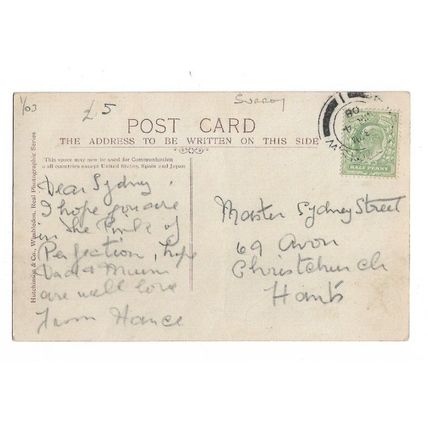 1/03
£5
Surrey
POST CARD
THE ADDRESS TO BE WRITTEN ON THIS SIDE
This space may now be used for Communication
to all countries except United States, Spain and Japan
Hutchinson & Co., Wimbledon, Real Photographic Series
Dear Sydney,
I hope you are
in the Pink of
Perfection, hope
Dad & Mum
are well love
from
Master Sydney Street
69 Avon
Christchurch
Hants
HALF PENNY